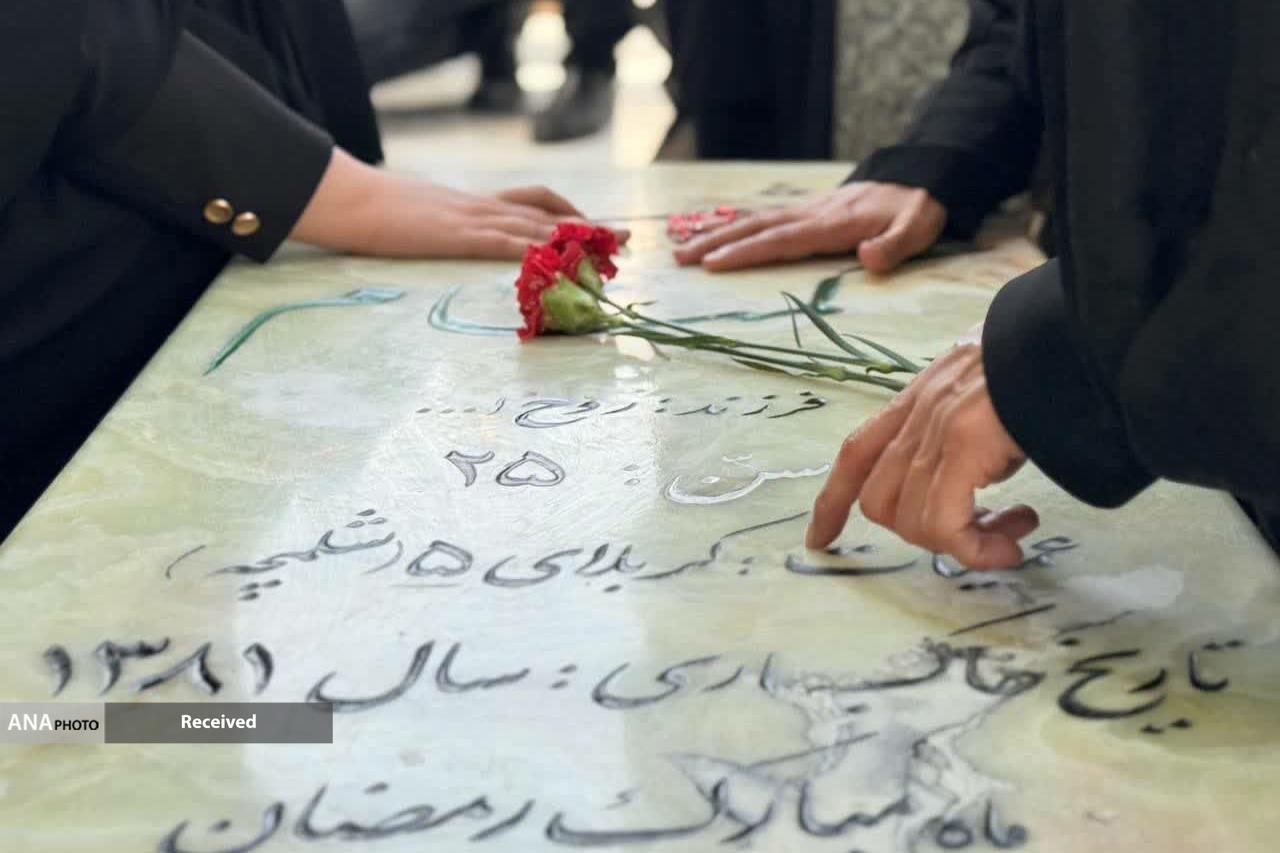 فرزند: روح ا...
سن: ۲۵
عملیات: کربلای ۵ (شلمچه)
تاریخ خاکسپاری: سال ۱۳۸۱
ماه مبارک رمضان
ANA PHOTO
Received